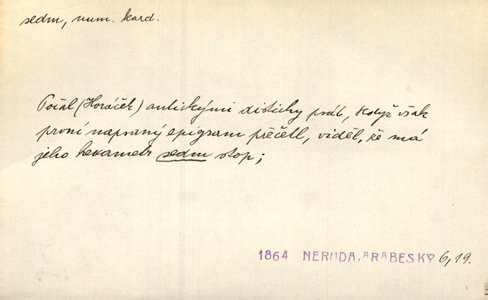 sedm, num. kard.
Počal (Horáček) antickými distichy psát, když však
první napsaný epigram přečetl, viděl, že má
jeho hexametr sedm stop;
1864 NERUDA, ARABESKY 6, 19.